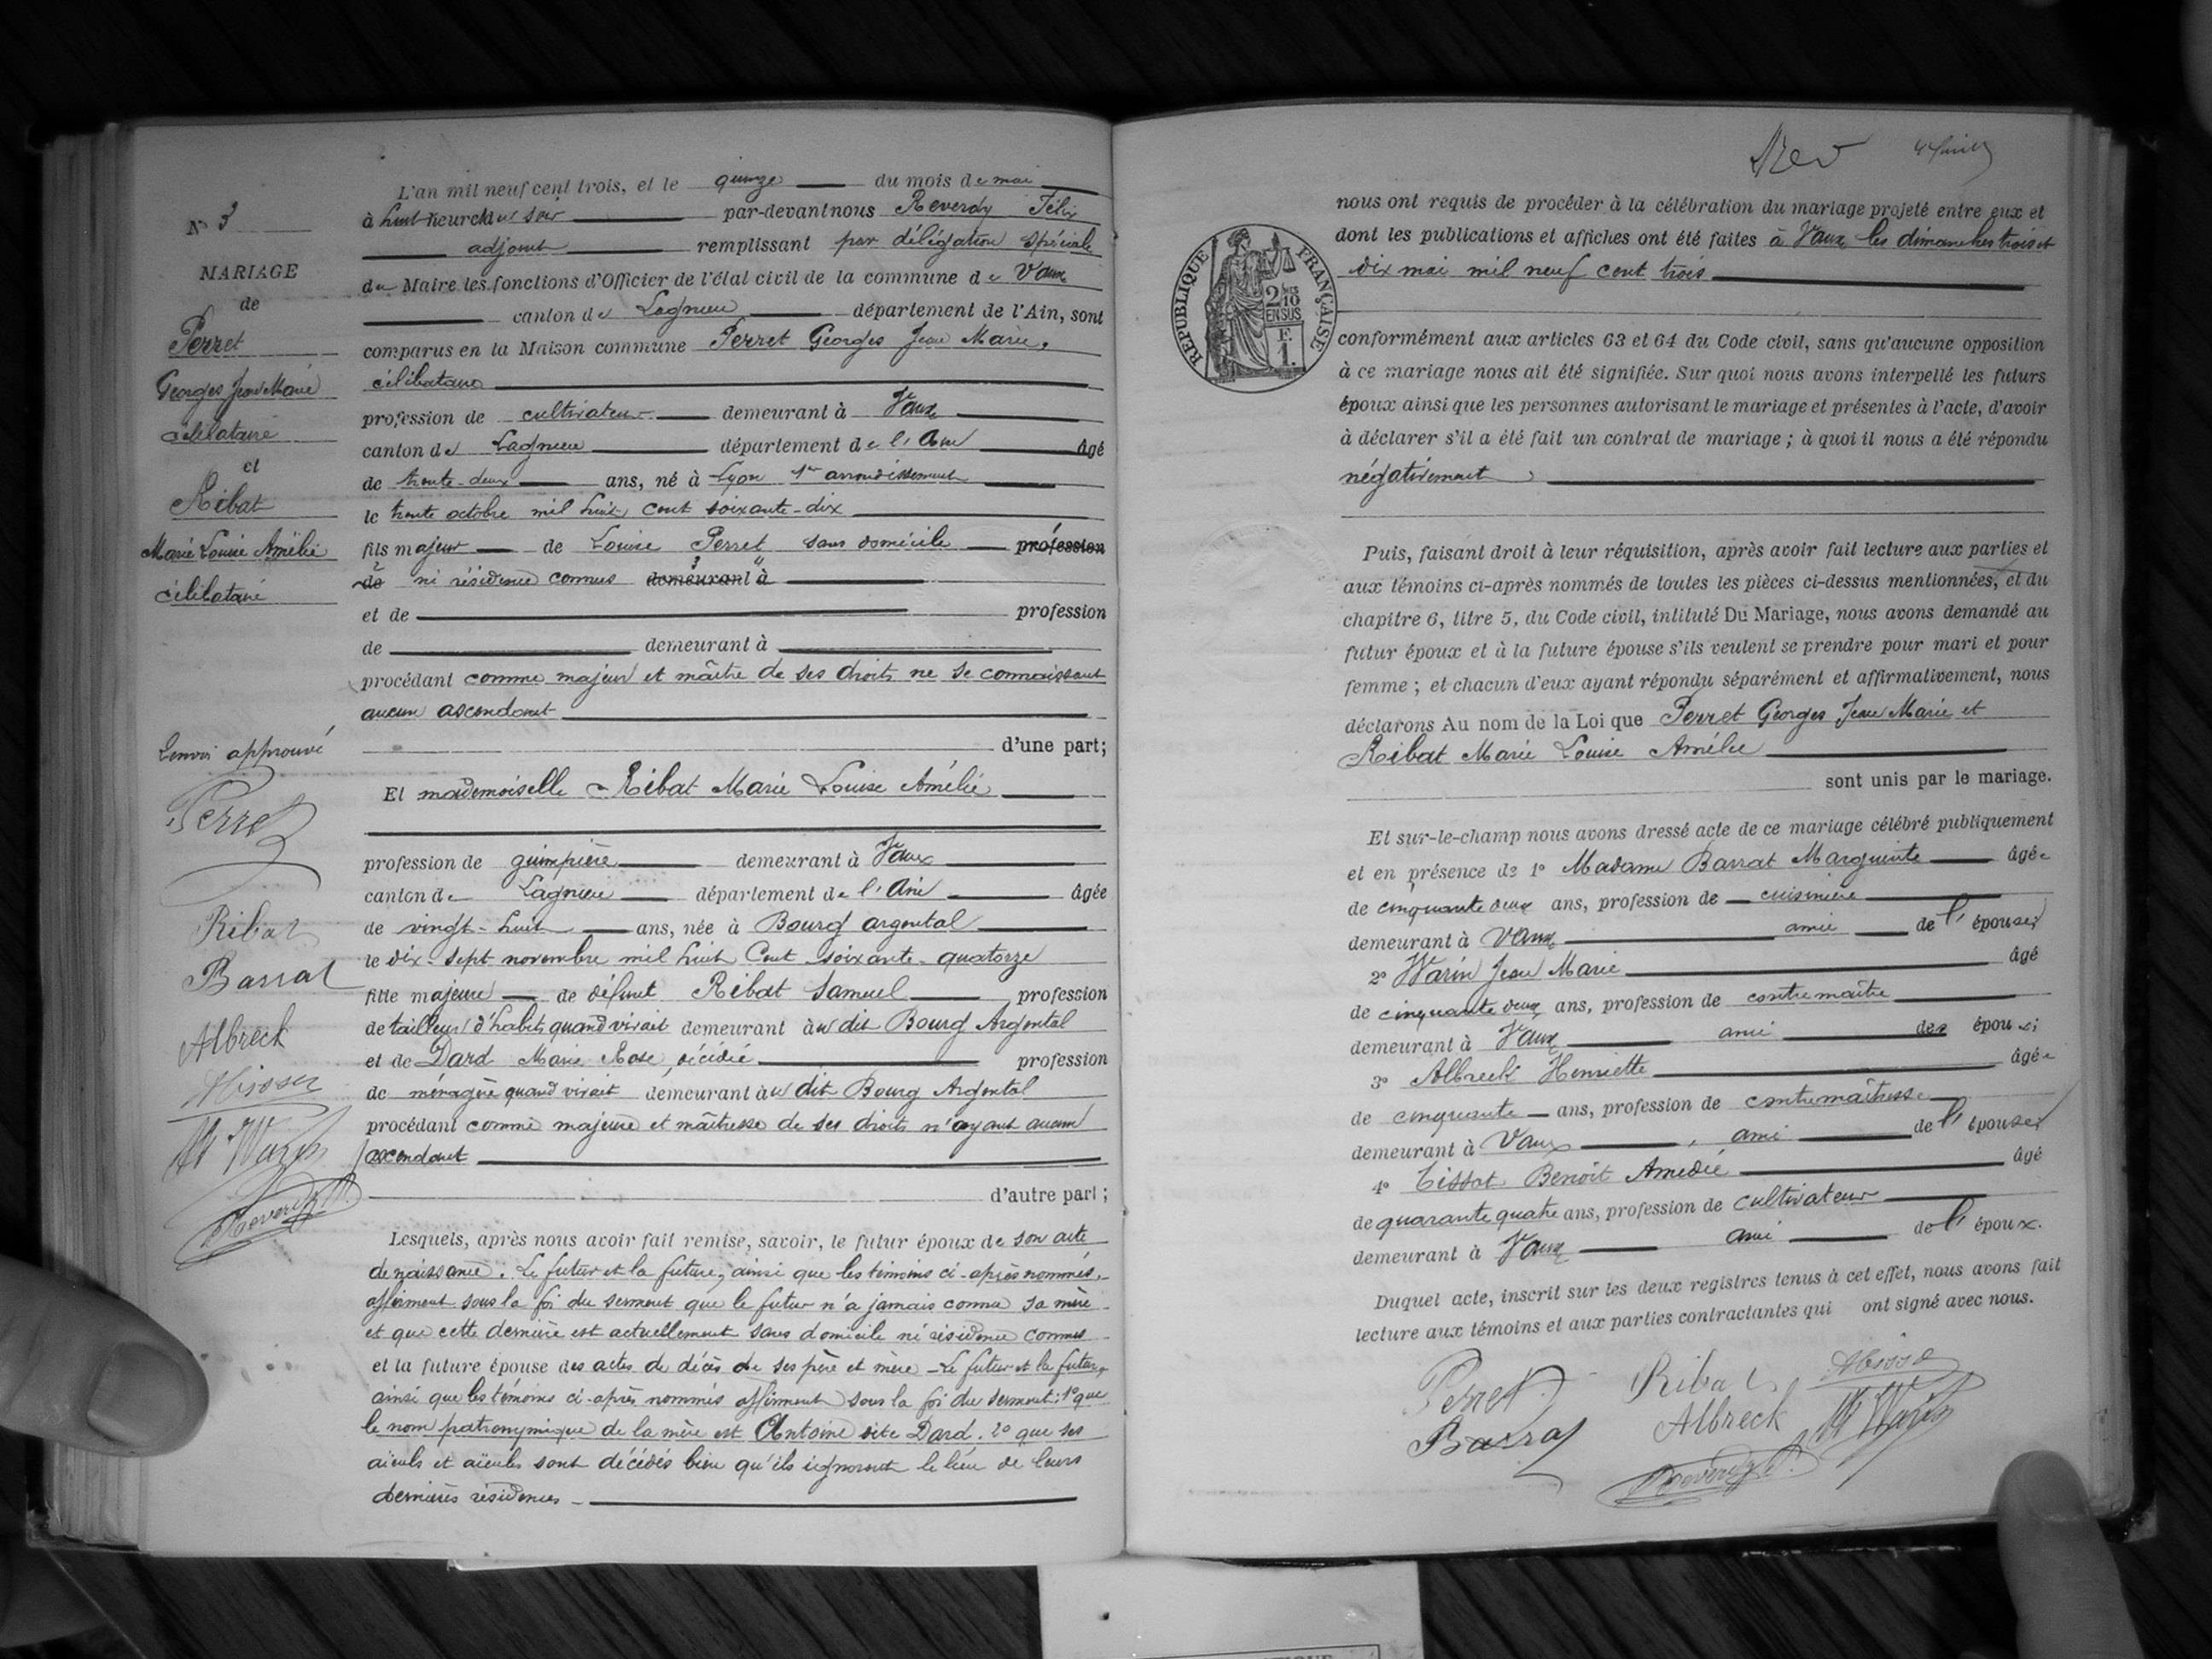 L'an mil neuf cent trois, et le quinze du mois de mai
à huit heures du soir par-devant nous Reverdy Félix
adjoint remplissant par délégation spéciale
du Maire les fonctions d'Officier de l'état civil de la commune de Vaux
canton de Lagnieu département de l'Ain, sont
comparus en la Maison commune Perret Georges Jean Marie,
célibataire
profession de cultivateur demeurant à Vaux
canton de Lagnieu département de l'Ain âgé
de trente-deux ans, né à Lyon 1er arrondissement
le trente octobre mil huit cent soixante-dix
fils majeur de Louise Perret sans domicile profession
de ni résidence connus demeurant à
et de profession
de demeurant à
procédant comme majeur et maître de ses droits ne se connaissant
aucun ascendant
d'une part;
Et mademoiselle Ribat Marie Louise Amélie
profession de guimpière demeurant à Vaux
canton de Lagnieu département de l'Ain âgée
de vingt-huit ans, née à Bourg argental
le dix-sept novembre mil huit Cent soixante-quatorze
fille majeure de défunt Ribat Samuel profession
de tailleur d'habits quand vivait demeurant au dit Bourg Argental
et de Dard Marie Rose, décédée profession
de ménagère quand vivait demeurant au dit Bourg Argental
procédant comme majeure et maîtresse de ses droits n'ayant aucun
ascendant
d'autre part;
Lesquels, après nous avoir fait remise, savoir, le futur époux de son acte
de naissance. Le futur et la future, ainsi que les témoins ci-après nommés,
affirment sous la foi du serment que le futur n'a jamais connu sa mère
et que cette dernière est actuellement sans domicile ni résidence connus
et la future épouse des actes de décès de ses père et mère - Le futur et la future,
ainsi que les témoins ci-après nommés affirment sous la foi du serment: 1° que
le nom patronymique de la mère est Antoine dite Dard. 2° que ses
aïeuls et aïeules sont décédés bien qu'ils ignorent le lieu de leurs
dernières résidences -
N° 3
MARIAGE
de
Perret
Georges Jean Marie
célibataire
et
Ribat
Marie Louise Amélie
célibataire
Renvoi approuvé
Perret
Ribat
Barrat
Albreck
Reverdy
nous ont requis de procéder à la célébration du mariage projeté entre eux et
dont les publications et affiches ont été faites à Vaux les dimanches trois et
dix mai mil neuf cent trois
RÉPUBLIQUE FRANÇAISE
2/10 EN SUS
F. 1.
conformément aux articles 63 et 64 du Code civil, sans qu'aucune opposition
à ce mariage nous ait été signifiée. Sur quoi nous avons interpellé les futurs
époux ainsi que les personnes autorisant le mariage et présentes à l'acte, d'avoir
à déclarer s'il a été fait un contrat de mariage; à quoi il nous a été répondu
négativement
Puis, faisant droit à leur réquisition, après avoir fait lecture aux parties et
aux témoins ci-après nommés de toutes les pièces ci-dessus mentionnées, et du
chapitre 6, titre 5, du Code civil, intitulé Du Mariage, nous avons demandé au
futur époux et à la future épouse s'ils veulent se prendre pour mari et pour
femme; et chacun d'eux ayant répondu séparément et affirmativement, nous
déclarons Au nom de la Loi que Perret Georges Jean Marie et
Ribat Marie Louise Amélie
sont unis par le mariage.
Et sur-le-champ nous avons dressé acte de ce mariage célébré publiquement
et en présence de 1° Madame Barrat Marguerite âgée
de cinquante deux ans, profession de cuisinière
demeurant à Vaux amie de l'épouse;
2° Warin Jean Marie âgé
de cinquante deux ans, profession de contremaître
demeurant à Vaux ami des époux;
3° Albreck Henriette âgée
de cinquante ans, profession de contremaîtresse
demeurant à Vaux, amie de l'épouse;
4° Tissot Benoît Amédée âgé
de quarante quatre ans, profession de cultivateur
demeurant à Vaux ami de l'époux.
Duquel acte, inscrit sur les deux registres tenus à cet effet, nous avons fait
lecture aux témoins et aux parties contractantes qui ont signé avec nous.
Perret Ribat
Barrat Albreck
Reverdy